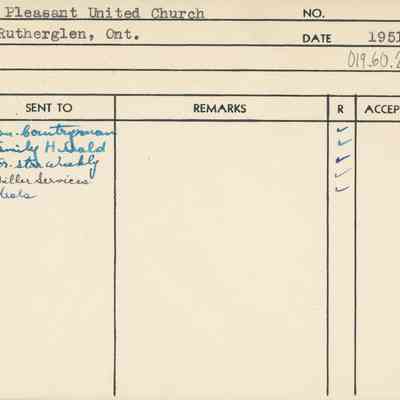 Pleasant United Church NO.
Rutherglen, Ont. DATE 1951
019.60.
SENT TO REMARKS R ACCEP
Countryman ✓
Family Herald ✓
Star Weekly ✓
Miller Services ✓
✓